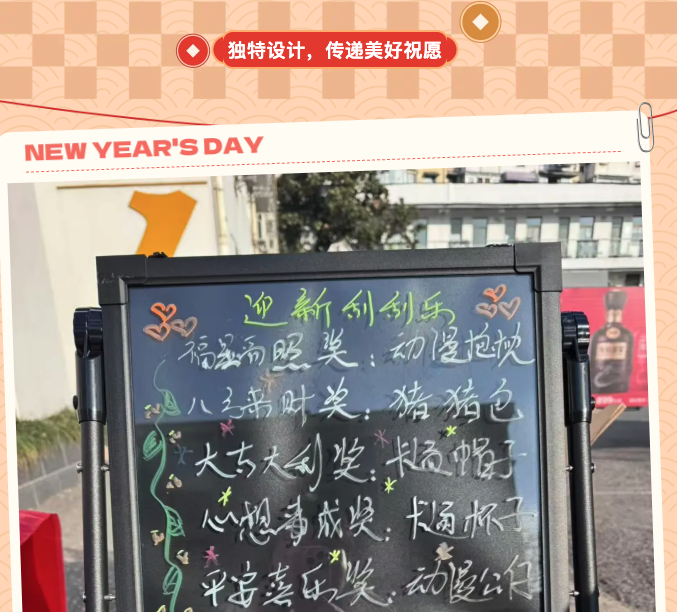 独特设计，传递美好祝愿
NEW YEAR'S DAY
1
迎新刮刮乐
福星高照奖：动漫抱枕
八方来财奖：猪猪包
大吉大利奖：卡通帽子
心想事成奖：卡通杯子
平安喜乐奖：动漫公仔